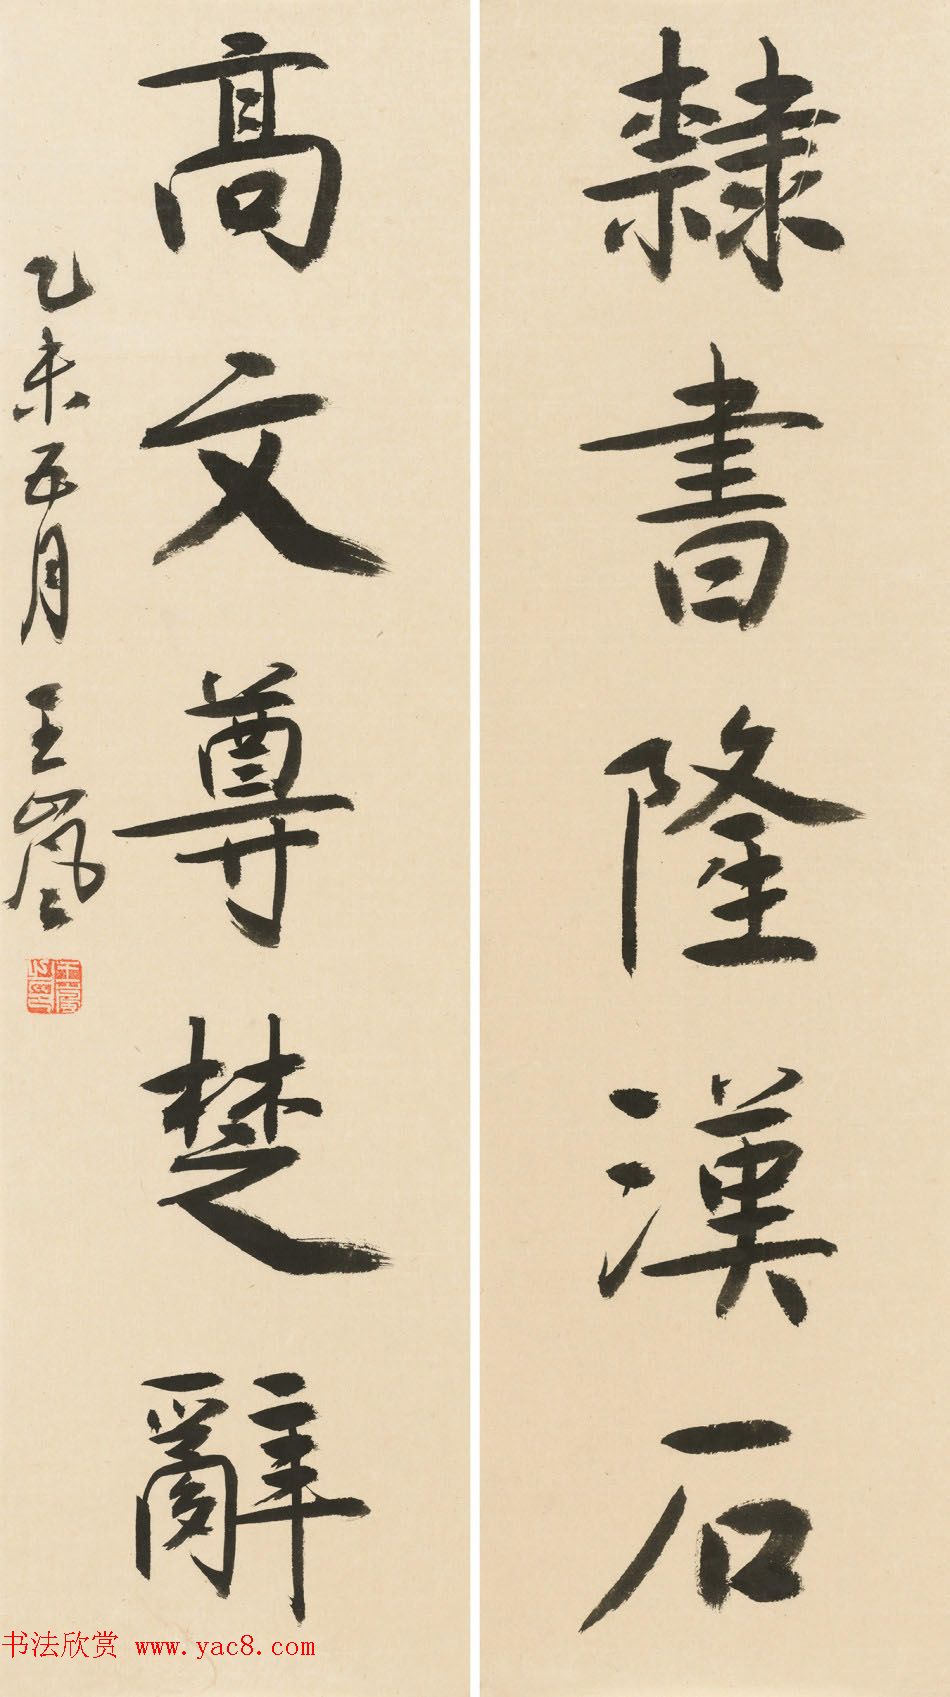 隸書隆漢石
高文尊楚辭
乙未五月王嵐
书法欣赏 www.yac8.com